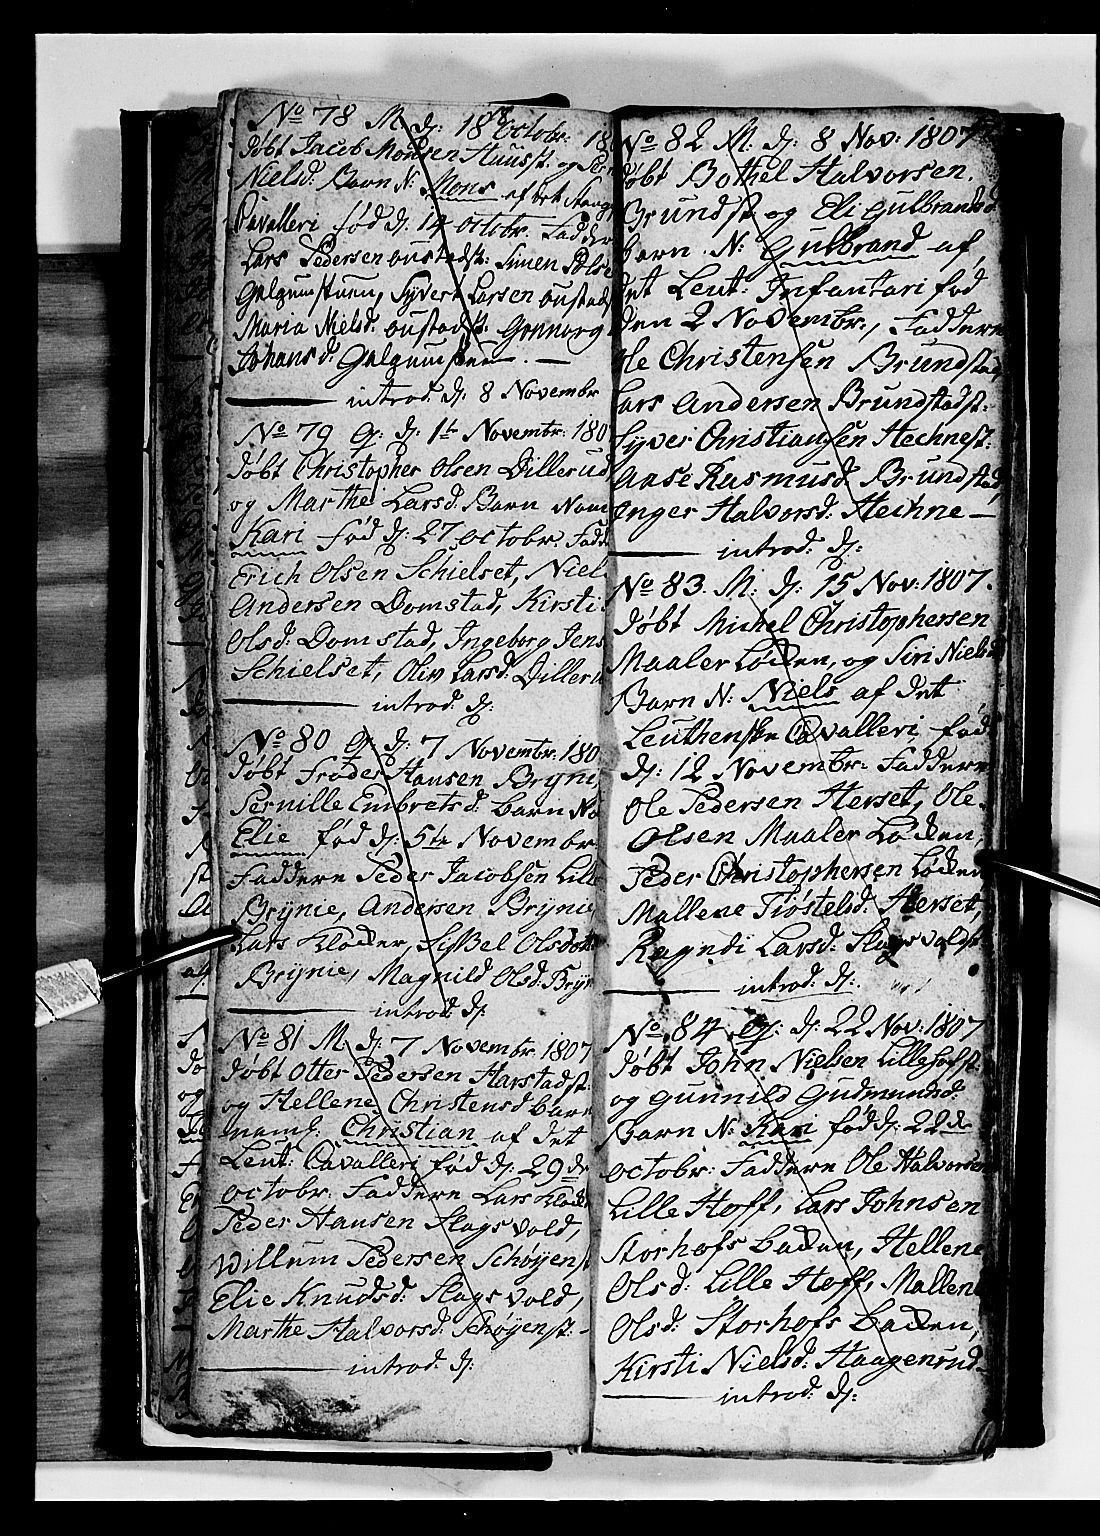 No 78 M. dj. 18 Octobr. 18
døbt Jacob Monsen Huusst. og
Nielsd. Barn N. Mons af det
Cavalleri fød dj. 14 Octobr. Fadder
Lars Pedersen oustadst: Simen
Galgumstuen, Syver Larsen oustads
Maria Nielsd. oustadst: Gonnorg
Johansd: Galgumstuen. —
introd. dj. 8 Novembr
No 79 Q. dj. 1te Novembr. 180
døbt Christopher Olsen Dillerud
og Marthe Larsd. Barn Nom
Kari fød dj: 27 Octobr. Fadd
Erich Olsen Schielset, Niel
Andersen Domstad, Kirsti
Olsd: Domstad, Ingeborg Jens
Schielset, Oliv Larsd. Dilleru
introd. dj.
No 80 Q. dj. 7 Novembr. 180
døbt Frøder Hansen Brynie,
Pernille Embretsd. barn No
Elie fød dj. 5te Novembr.
Faddere Peder Jacobsen Lille
Brÿnie, Andersen Brÿnie
Lars Kløcker, Sissel Olsdott
Brÿnie, Magnild Olsd. Brÿn
introd. dj.
No 81 M. dj. 7 Novembr. 1807
døbt Otter Pedersen Harstadst.
og Hellene Christensd barn
naml. Christian af det
Leut: Cavalleri fød dj. 29de
Octobr. Faddere Lars Kløck
Peder Hansen Slagsvold,
Willum Pedersen Schøÿenst
Elie Knudsd: Slagsvold,
Marthe Halvorsd: Schøÿenst. -
introd. dj.
No 82 M. dj. 8 Nov: 1807
døbt Bothel Halvorsen.
Brundst. og Eli Gulbrandsd
barn N: Gulbrand af
det Leut: Infantari fød
den 2 Novembr., Faddere
Ole Christensen Brundstad,
Lars Andersen Brundstadst.
Syver Christiansen Hechnest.
Aase Rasmusd. Brundstad,
Inger Halvorsd. Hechne —
introd. dj.
No 83. M. dj. 15 Nov: 1807.
døbt Michel Christophersen
Maaler Løcken, og Siri Nielsd
Barn N: Niels af det
Leuthenske Cavalleri fød
dj. 12 Novembr. Faddere
Ole Pedersen Herset, Ole
Olsen Maaler Løcken,
Peder Christophersen Løcken
Mallene Tiøstelsd. Herset,
Ragndi Larsd. Slagsvoldst
introd. dj.
No 84 Q. dj. 22 Nov: 1807
døbt John Nielsen Lillehofst.
og Gunnild Gudmundsd.
Barn N. Kari fød dj. 22de
Octobr. Faddere Ole Halvorsen
Lille Hoff, Lars Johnsen
Storhofs backen, Hellene
Olsd: Lille Hoff, Mallene
Olsd: Storhofs backen,
Kirsti Nielsd. Haagenrud.
introd. dj.